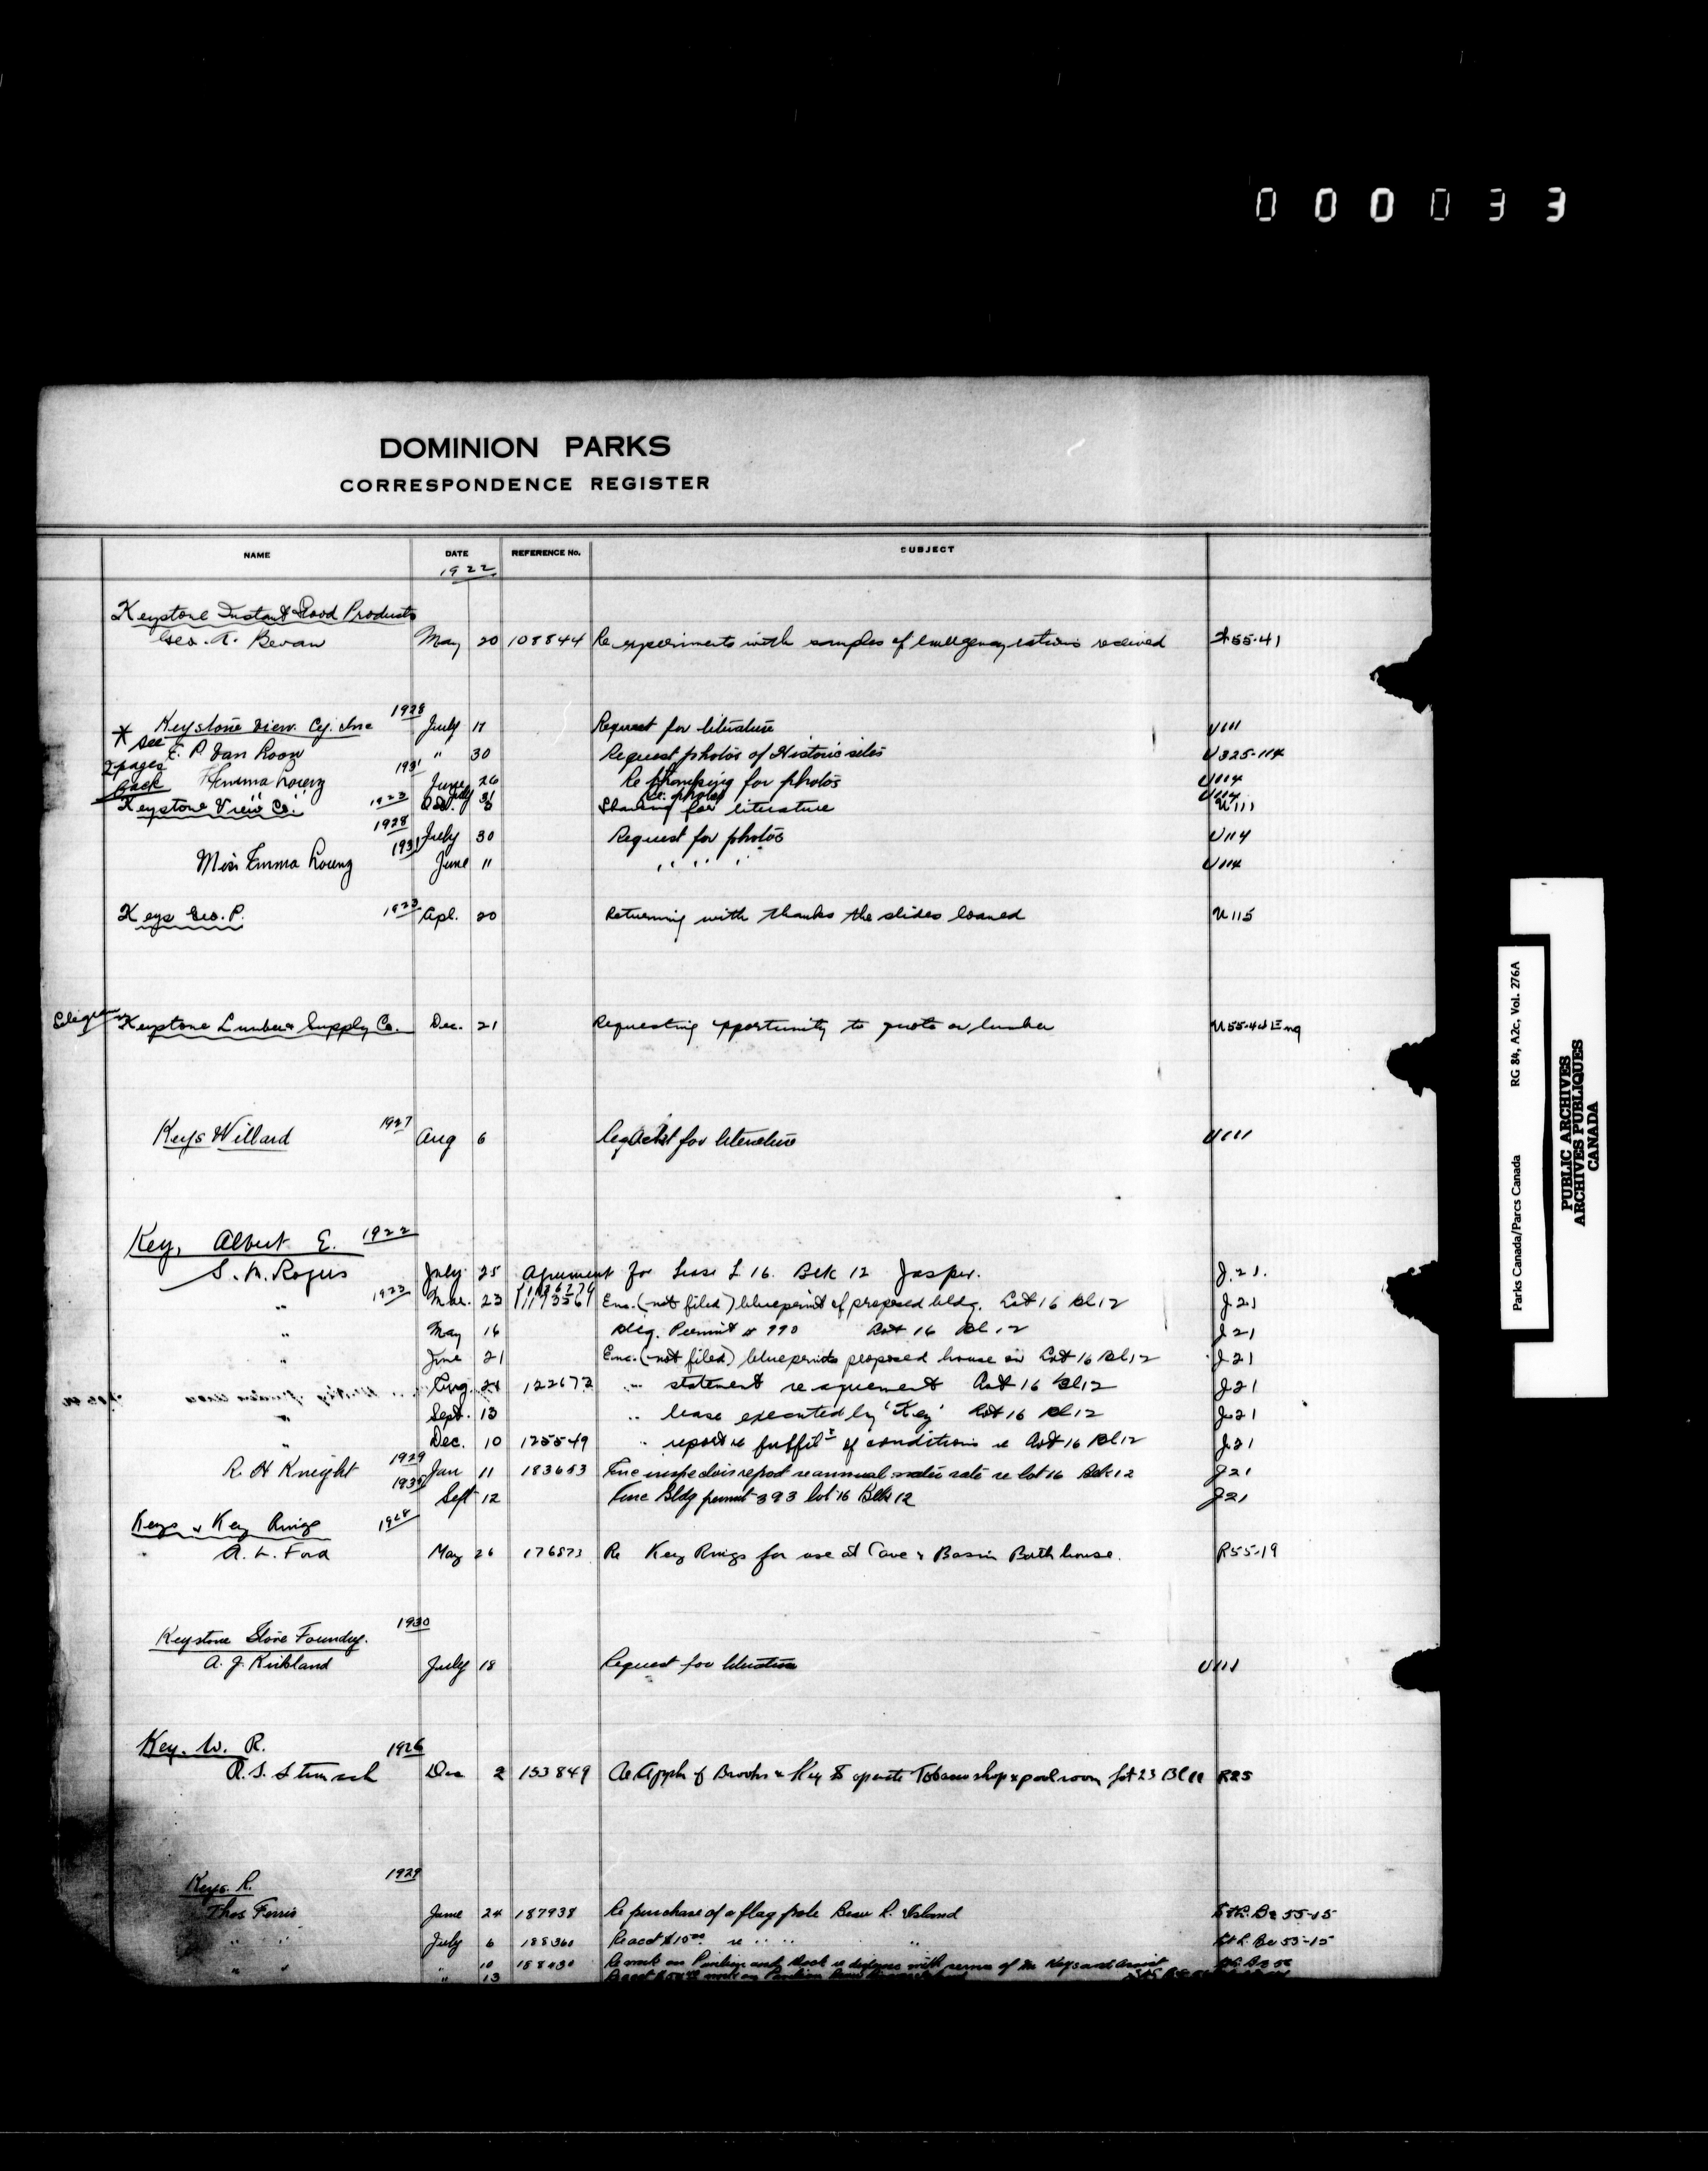 000033
DOMINION PARKS
CORRESPONDENCE REGISTER
NAME DATE REFERENCE No. SUBJECT
1922
Keystone Instant Food Products
Geo. A. Bevan May 20 108844 Re experiments with samples of emergency rations received 55-41
* Keystone View. Cy. Inc 1928 July 17 Request for literature U111
see E. P. Van Loon " 30 Request photos of Historic sites U325-114
2 pages back Emma Lorenz 1931 June 26 Re for photos U114
July 31 Re. photos U114
Keystone View Co. 1923 3 for literature U111
1928 July 30 Request for photos U114
Miss Emma Lorenz 1931 June 11 " " " U114
Keys Geo. P. 1923 Apl. 20 Returning with thanks the slides loaned U115
Keystone Lumber & Supply Co. Dec. 21 Requesting opportunity to quote on lumber U55-4d Eng
Keys Willard 1927 Aug 6 Request for literature U111
Key, Albert E. 1922
S. M. Rogers July 25 Agreement for Lease L 16. Blk 12 Jasper. J.21.
" 1923 Mar. 23 Enc. (not filed) blueprint of proposed bldg. Lot 16 Bl 12 J21
" May 16 Bldg. Permit # 990 Lot 16 Bl 12 J21
" June 21 Enc. (not filed) blueprints proposed house on Lot 16 Bl 12 J21
Aug. 24 122672 " statement re agreement Lot 16 Bl 12 J21
" Sept. 13 " lease executed by 'Key' Lot 16 Bl 12 J21
" Dec. 10 125549 " report re fulfil't of conditions re Lot 16 Bl 12 J21
R. H Knight 1929 Jan 11 183653 Enc inspectors report re annual water rate re lot 16 Blk 12 J21
Sept 12 Enc Bldg permit 393 lot 16 Blk 12 J21
Keys & Key Rings 1928
A. L. Ford May 26 176573 Re Key Rings for use at Cave & Basin Bath house. R55-19
Keystone Stove Foundry. 1930
A. J. Kirkland July 18 Request for literature U111
Key. W. R. 1926
R. S. Stronach Dec 2 153849 Re Appln of Brooks & Key to operate Tobacco shop & pool room Lot 23 Bl R25
Keys. R. 1929
Thos Ferris June 24 187938 Re purchase of a flag pole Beau R. Island St L. Be 55-15
" " July 6 188360 Re acct $10.00 re " " " St L. Be 55-15
" " " 10 Re work on Pavilion and dock
" 13
Parks Canada/Parcs Canada RG 84, A2c, Vol. 276A
PUBLIC ARCHIVES
ARCHIVES PUBLIQUES
CANADA